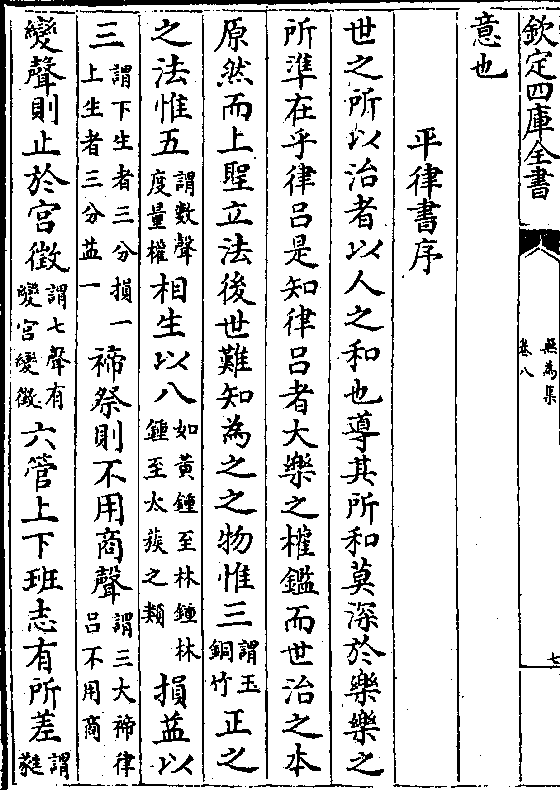 欽定四庫全書
無為集
卷八
七
意也
平律書序
世之所以治者以人之和也導其所和莫深於樂樂之
所準在乎律呂是知律呂者大樂之權鑑而世治之本
原然而上聖立法後世難知為之之物惟三謂玉銅竹正之
之法惟五謂數聲度量權相生以八如黃鍾至林鍾林鍾至太蔟之類損益以
三謂下生者三分損一上生者三分益一禘祭則不用商聲謂三大禘律呂不用商
變聲則止於宮徵謂七聲有變宮變徵六管上下班志有所差謂蕤